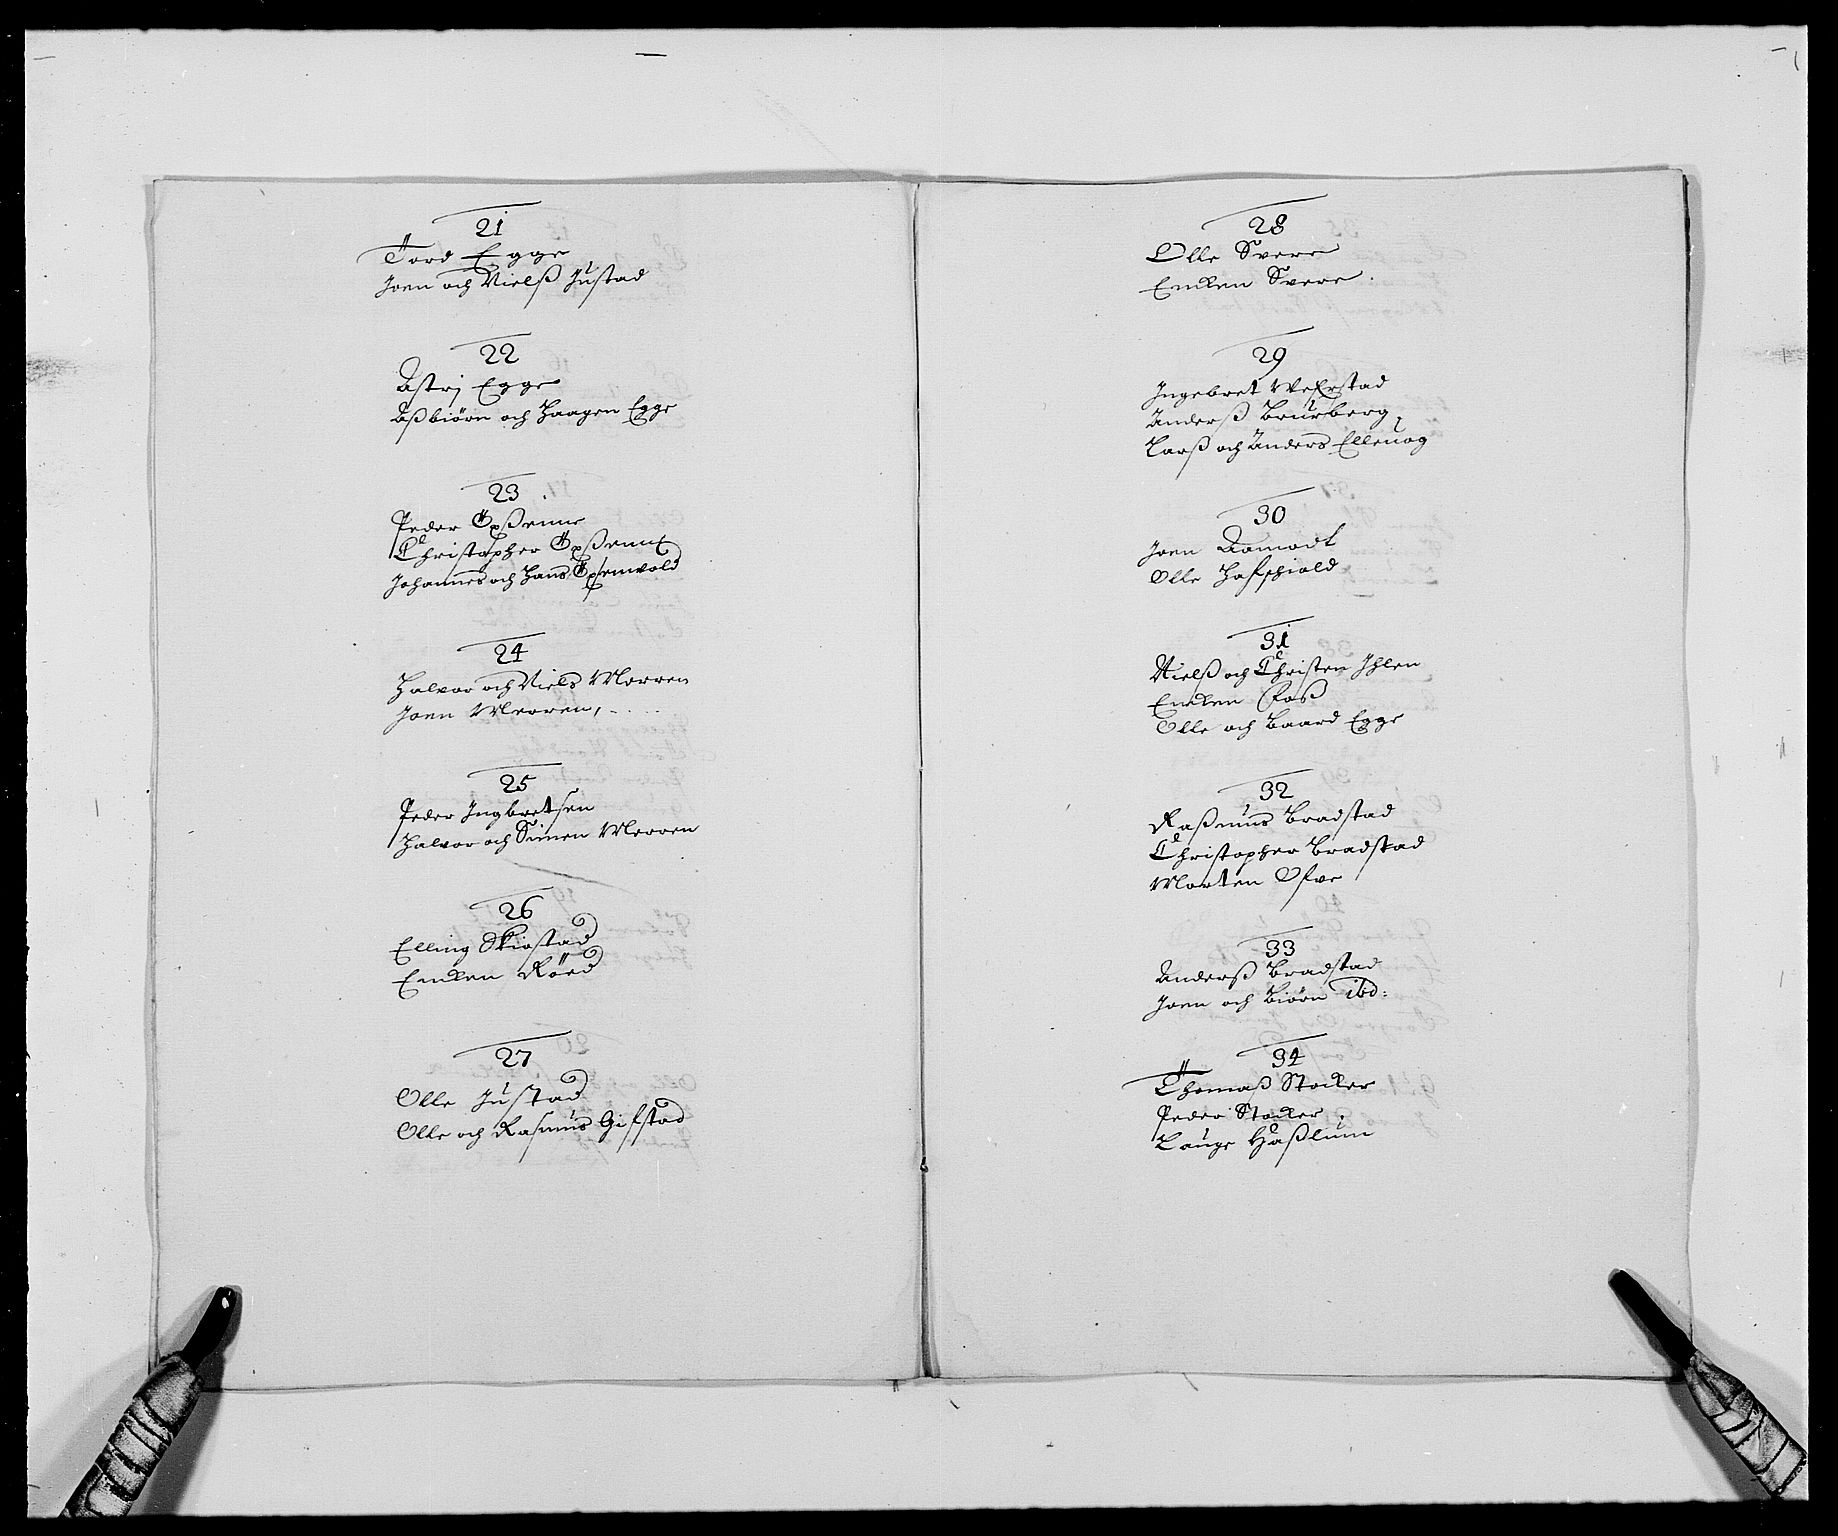 21
Tord Egge
Joen och Nielß Justad
22
Astrj Egge
Aßbiörn och Haagen Egge
23
Peder Opßenne
Christopher Opßenne
Johannes och Hans Opsenwold
24
Halvor och Niels Morren
Joen Morren,
25
Peder Ingbretsen
Halvor och Simen Morren
26
Elling Skiøstad
Enchen Röed
27
Olle Justad
Olle och Rasmus Gifstad
28
Olle Svere
Enchen Svere
29
Ingebret Wefrstad
Anderß Brurberg
Larß och Anders Elleuog
30
Joen Aamodt
Olle Hafschiold
31
Nielß och Christen Ihlen
Enchen Foß
Olle och Baard Egge
32
Raßmus Bradstad
Christopher Bradstad
Morten Ofre
33
Anderß Bradstad
Joen och Biörn ibd:
34
Thomaß Stocker
Peder Stocker
Lauge Haßlum